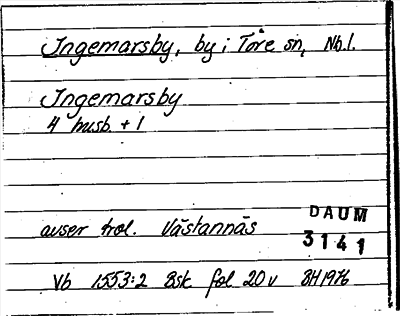 Ingemarsby, by i Töre sn, Nb.l.
Ingemarsby
4 husb. + 1
avser trol. Västannäs
DAUM
3141
Vb 1553:2 Bsk fol 20 v BH 1976